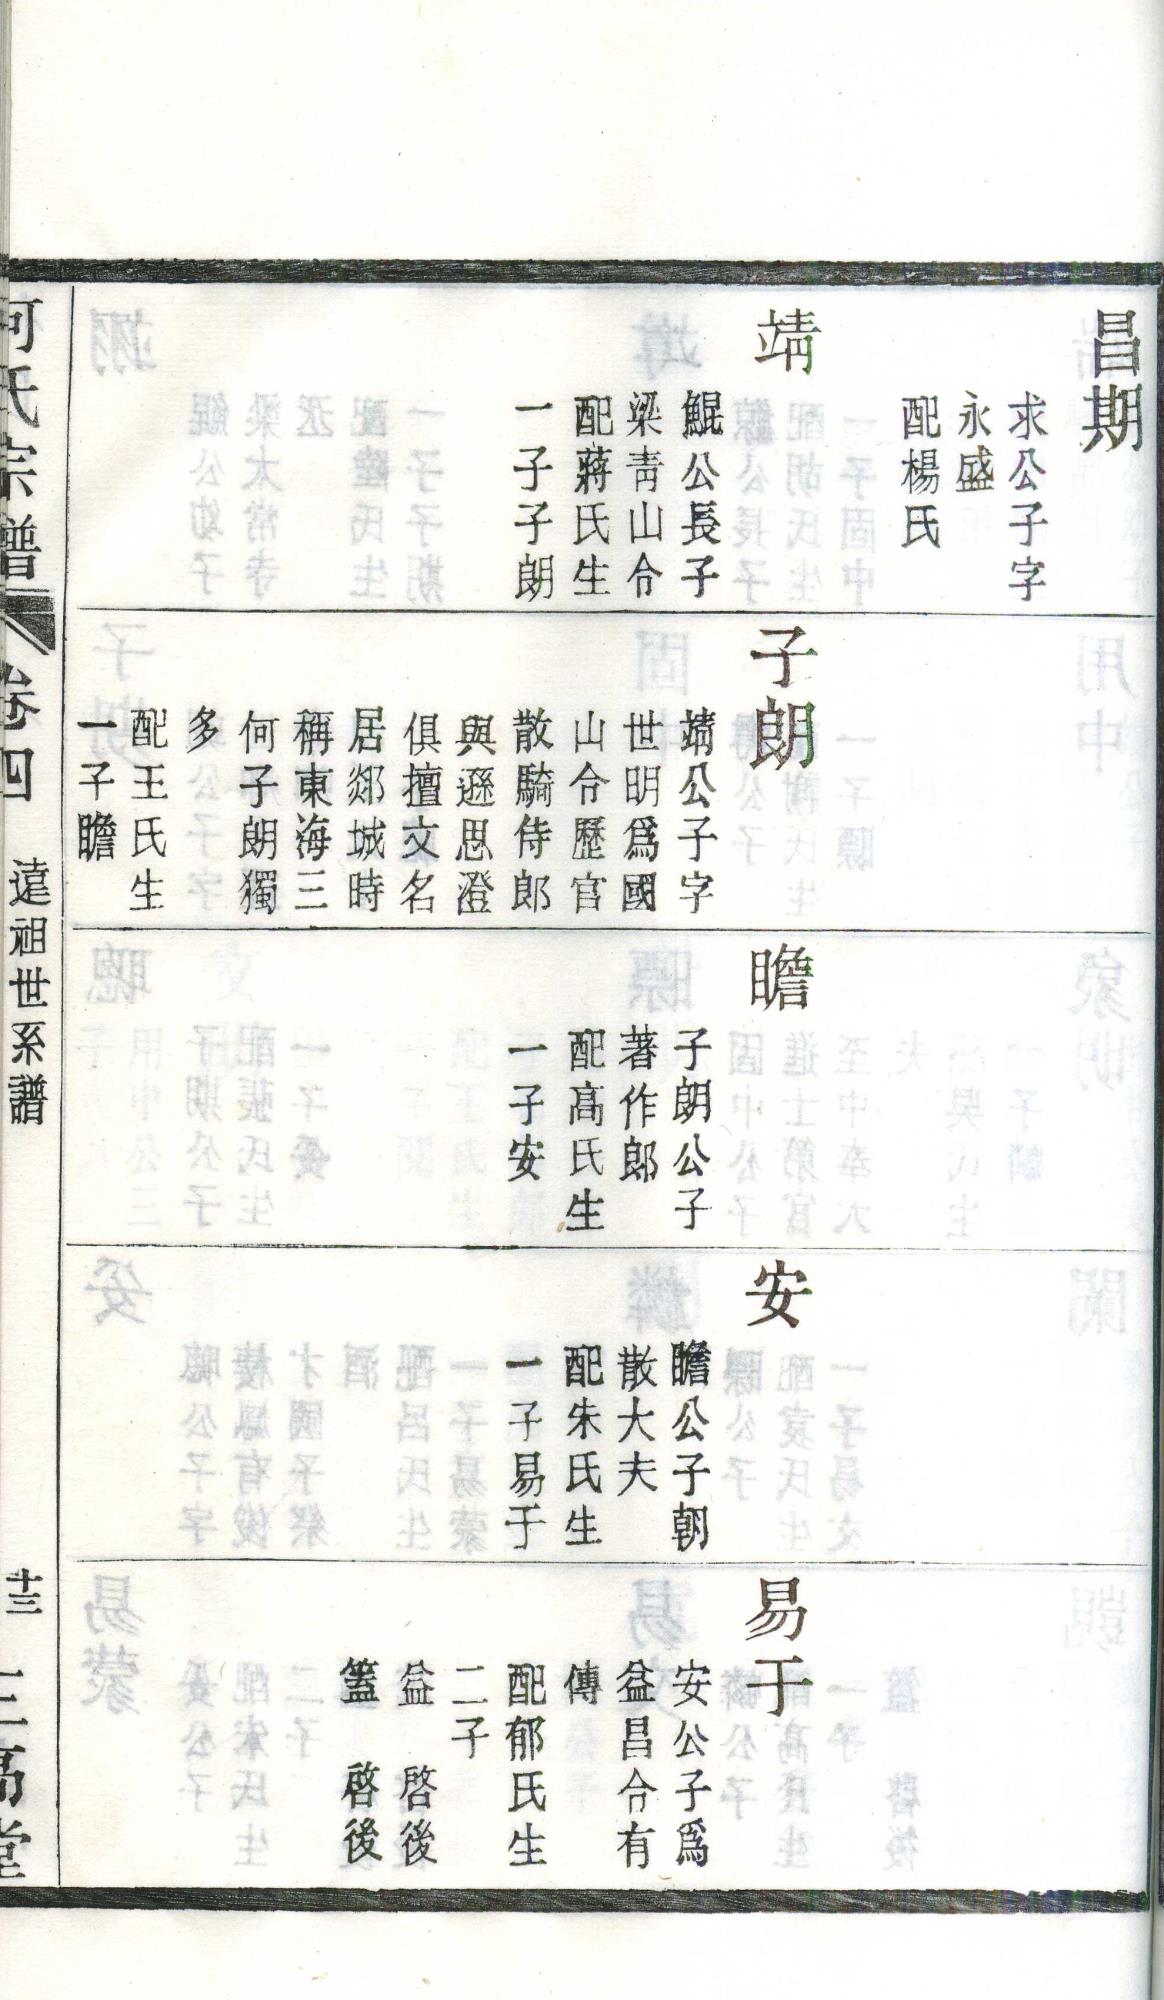 昌期
求公子字
永盛
配楊氏
靖
鯤公長子
梁青山令
配蔣氏生
一子子朗
子朗
靖公子字
世明爲國
山令歷官
散騎侍郎
與遜思澄
俱擅文名
居郯城時
稱東海三
何子朗獨
多
配王氏生
一子瞻
瞻
子朗公子
著作郎
配高氏生
一子安
安
瞻公子朝
散大夫
配朱氏生
一子易于
易于
安公子爲
益昌令有
傳
配郁氏生
二子
益 啓後
簋 啓後
何氏宗譜
卷四
遠祖世系譜
十三
三高堂